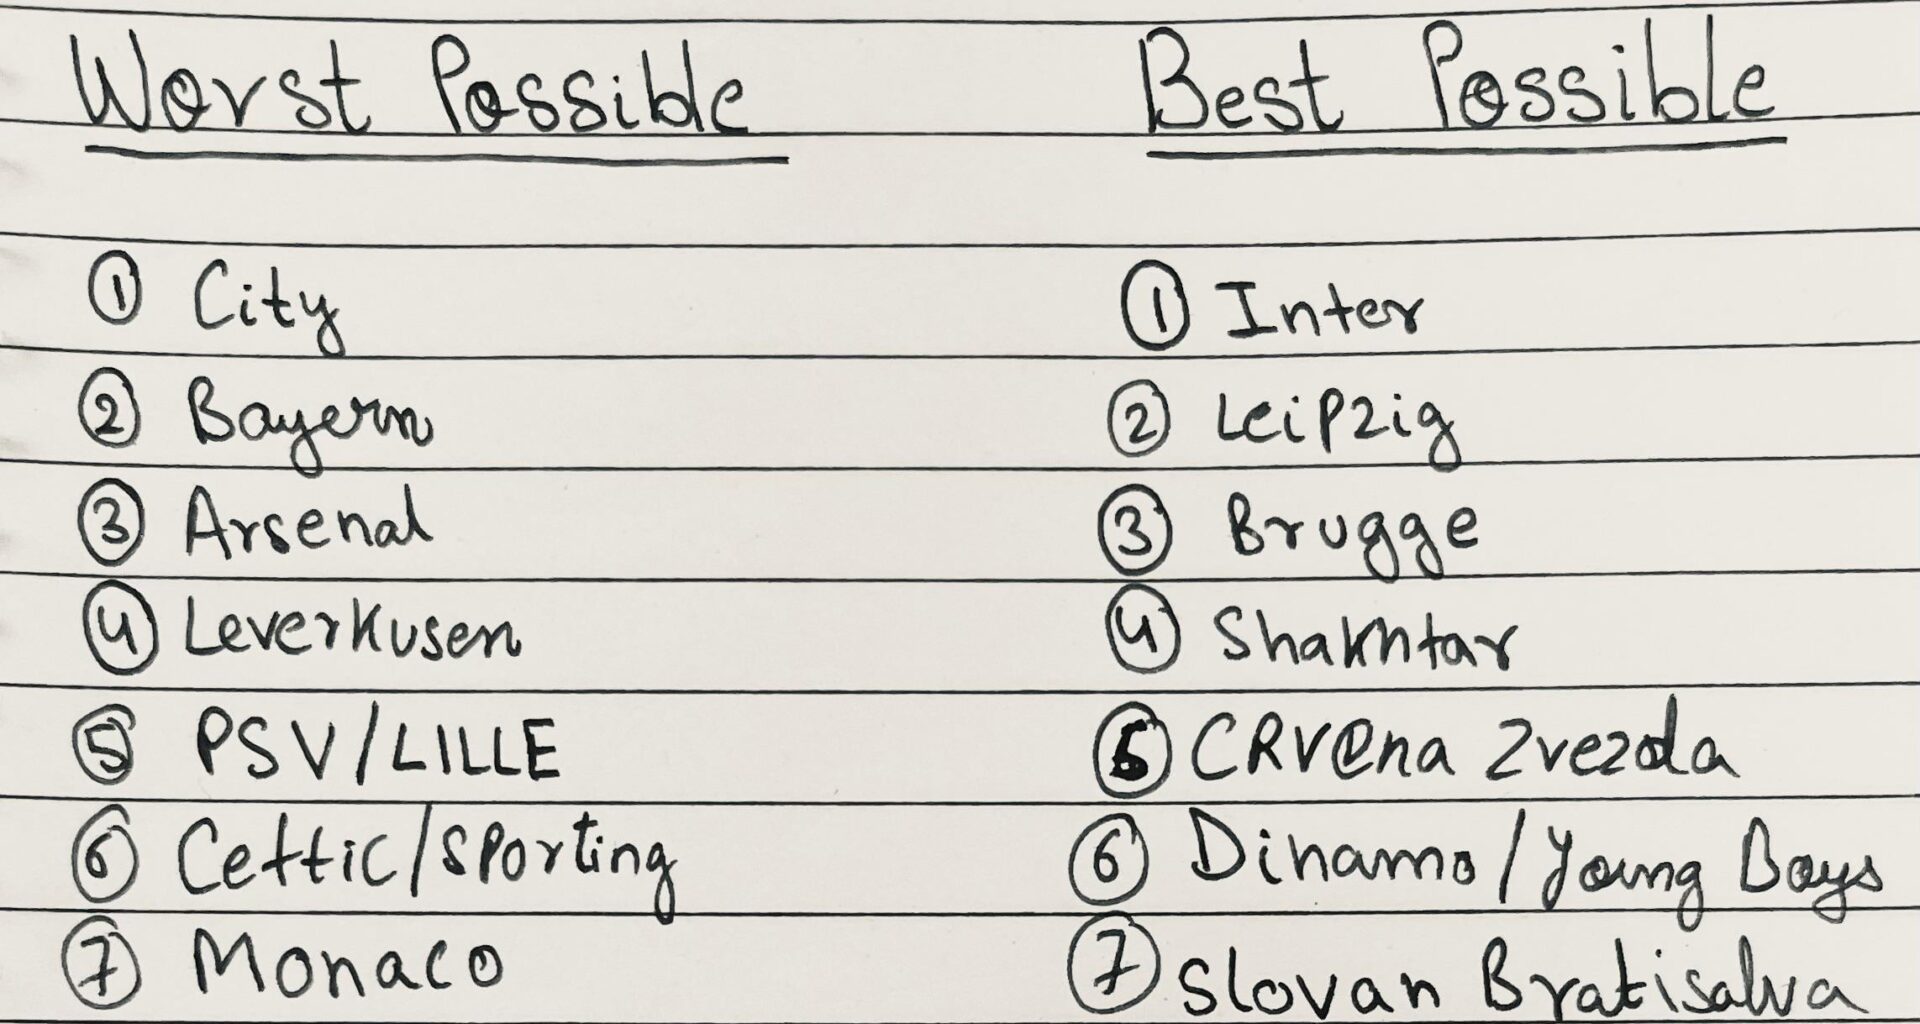 Worst Possible
Best Possible
① City
② Bayern
③ Arsenal
④ Leverkusen
⑤ PSV/LILLE
⑥ Celtic/Sporting
⑦ Monaco
① Inter
② Leipzig
③ Brugge
④ Shakhtar
⑤ CRVena Zvezda
⑥ Dinamo/Young Boys
⑦ Slovan Bratisalva